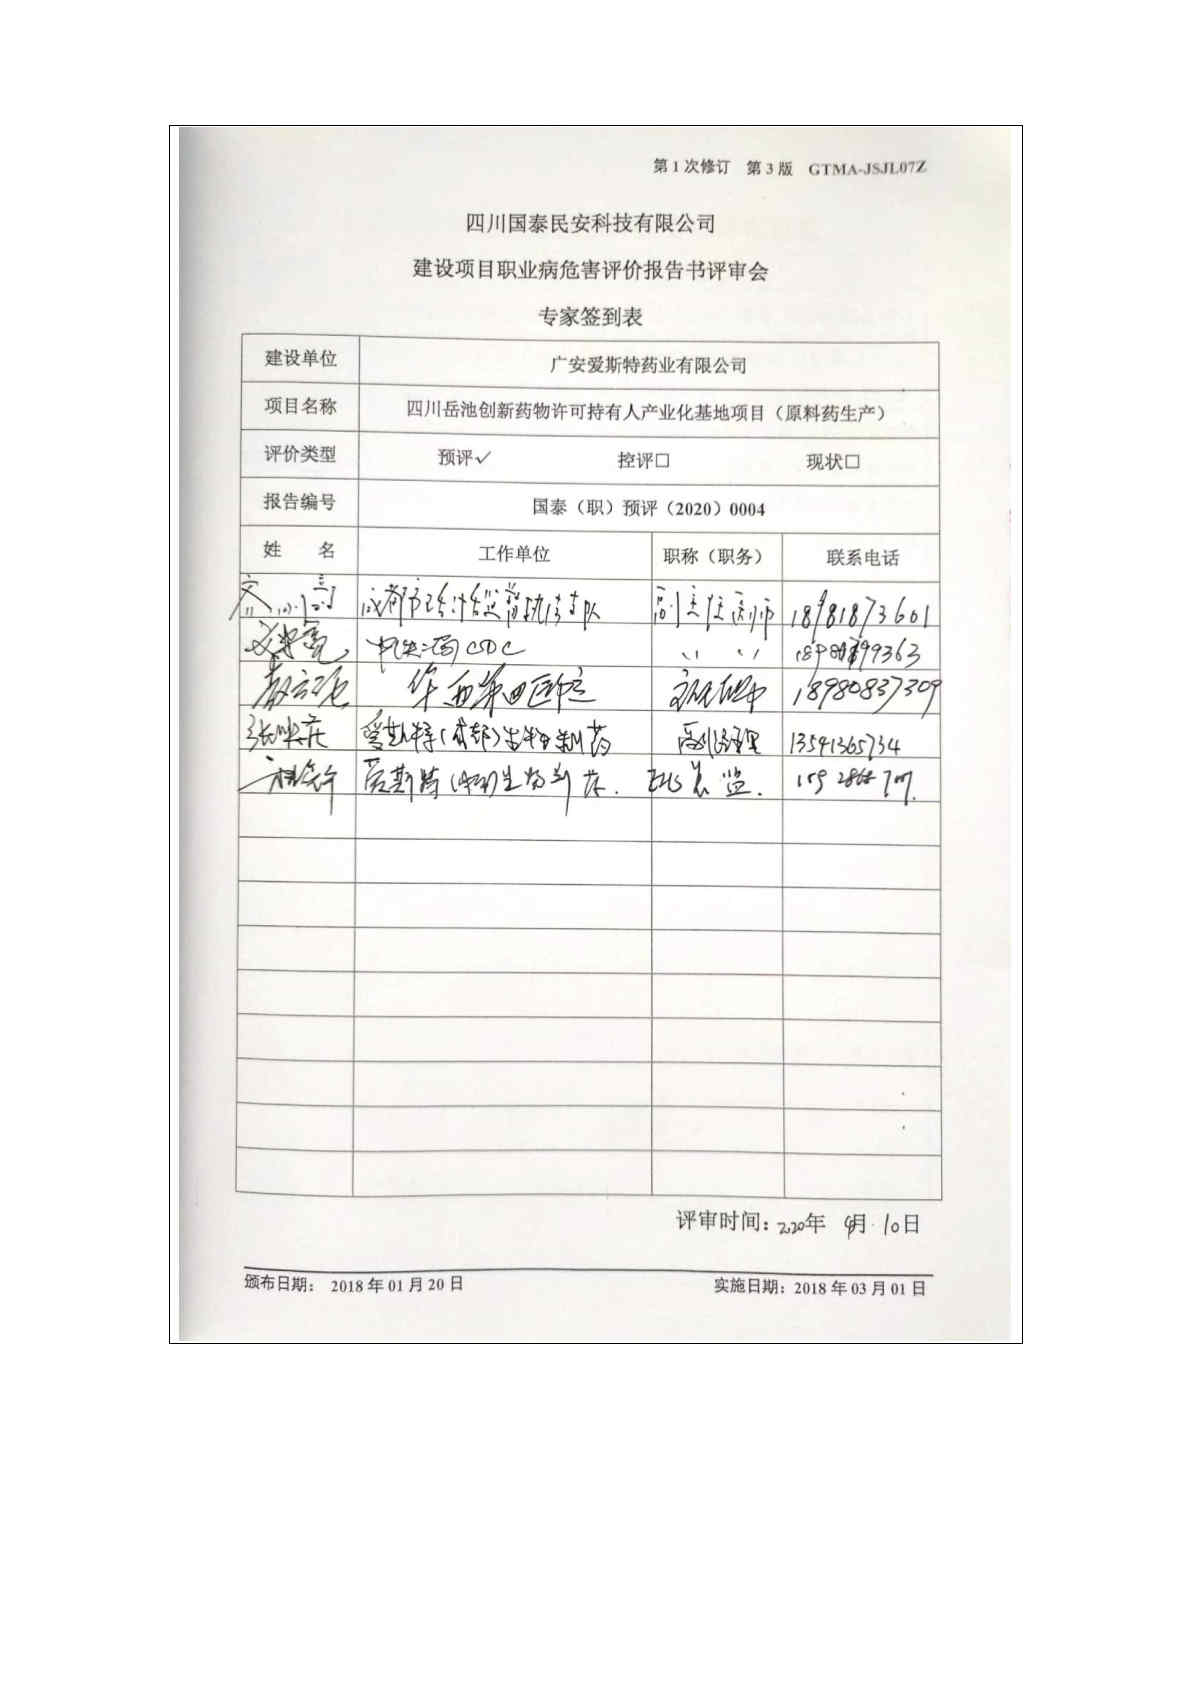 第1次修订 第3版 GTMA-JSJL07Z
四川国泰民安科技有限公司
建设项目职业病危害评价报告书评审会
专家签到表
建设单位 广安爱斯特药业有限公司
项目名称 四川岳池创新药物许可持有人产业化基地项目（原料药生产）
评价类型 预评✓ 控评□ 现状□
报告编号 国泰（职）预评（2020）0004
姓 名 工作单位 职称（职务） 联系电话
成都市 监督执法支队 副主任医师 18981873601
CDC 〃 〃
华西第四医院 18980837309
爱斯特（成都）生物制药 13541365734
爱斯特（成都）生物制药. 总监.
评审时间：2020年 4月10日
颁布日期： 2018年01月20日 实施日期：2018年03月01日